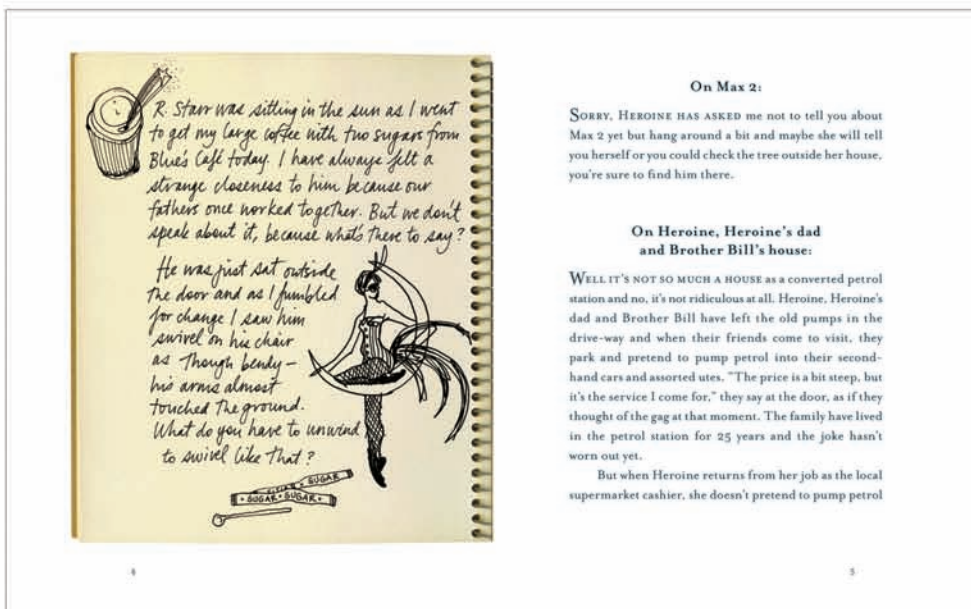 R. Starr was sitting in the sun as I went
to get my large coffee with two sugars from
Blue's Café today. I have always felt a
strange closeness to him because our
fathers once worked together. But we don't
speak about it, because what's there to say?
He was just sat outside
the door and as I fumbled
for change I saw him
swivel on his chair
as though bendy –
his arms almost
touched the ground.
What do you have to unwind
to swivel like that?
SUGAR
• SUGAR • SUGAR •
4
On Max 2:
SORRY, HEROINE HAS ASKED me not to tell you about
Max 2 yet but hang around a bit and maybe she will tell
you herself or you could check the tree outside her house,
you're sure to find him there.
On Heroine, Heroine's dad
and Brother Bill's house:
WELL IT'S NOT SO MUCH A HOUSE as a converted petrol
station and no, it's not ridiculous at all. Heroine, Heroine's
dad and Brother Bill have left the old pumps in the
drive-way and when their friends come to visit, they
park and pretend to pump petrol into their second-
hand cars and assorted utes. "The price is a bit steep, but
it's the service I come for," they say at the door, as if they
thought of the gag at that moment. The family have lived
in the petrol station for 25 years and the joke hasn't
worn out yet.
But when Heroine returns from her job as the local
supermarket cashier, she doesn't pretend to pump petrol
5